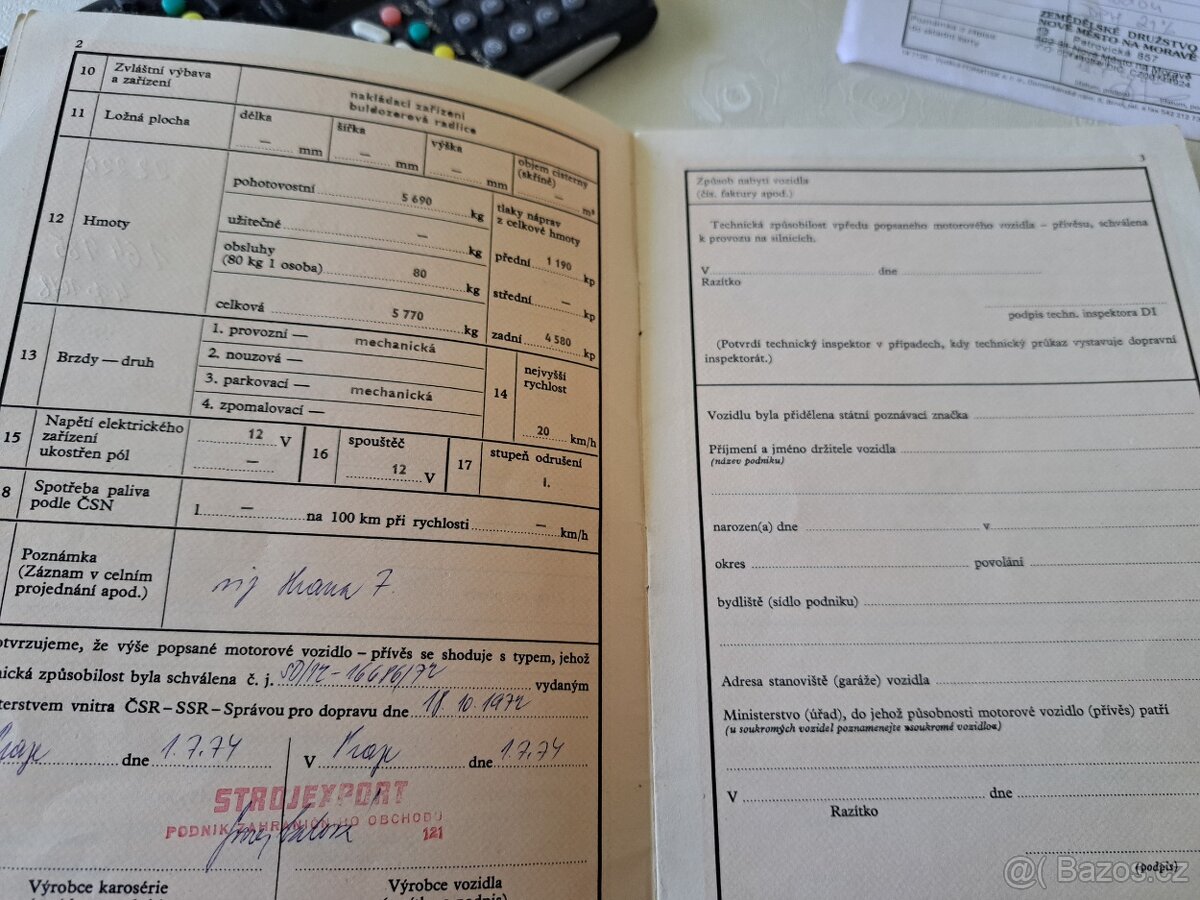 2
10 Zvláštní výbava
a zařízení
nakládací zařízení
buldozerová radlice
11 Ložná plocha
délka
— mm
šířka
— mm
výška
— mm
objem cisterny
(skříně)
— m³
12 Hmoty
pohotovostní 5 690 kg
užitečné — kg
obsluhy
(80 kg 1 osoba) 80 kg
celková 5 770 kg
tlaky náprav
z celkové hmoty
přední 1 190 kp
střední — kp
zadní 4 580 kp
13 Brzdy — druh
1. provozní — mechanická
2. nouzová —
3. parkovací — mechanická
4. zpomalovací —
14 nejvyšší
rychlost
20 km/h
15 Napětí elektrického
zařízení
ukostřen pól
12 V
—
16 spouštěč
12 V
17 stupeň odrušení
I.
8 Spotřeba paliva
podle ČSN
1 — na 100 km při rychlosti — km/h
Poznámka
(Záznam v celním
projednání apod.)
7.
otvrzujeme, že výše popsané motorové vozidlo – přívěs se shoduje s typem, jehož
nická způsobilost byla schválena č. j. SD/12-16686/72 vydaným
terstvem vnitra ČSR – SSR – Správou pro dopravu dne 18.10.1972
dne 1.7.74
V Praze dne 1.7.74
STROJEXPORT
PODNIK ZAHRANIČNÍHO OBCHODU
121
Výrobce karosérie
Výrobce vozidla
3
Způsob nabytí vozidla
(čís. faktury apod.)
Technická způsobilost vpředu popsaného motorového vozidla – přívěsu, schválena
k provozu na silnicích.
V dne
Razítko
podpis techn. inspektora DI
(Potvrdí technický inspektor v případech, kdy technický průkaz vystavuje dopravní
inspektorát.)
Vozidlu byla přidělena státní poznávací značka
Příjmení a jméno držitele vozidla
(název podniku)
narozen(a) dne v
okres povolání
bydliště (sídlo podniku)
Adresa stanoviště (garáže) vozidla
Ministerstvo (úřad), do jehož působnosti motorové vozidlo (přívěs) patří
(u soukromých vozidel poznamenejte »soukromé vozidlo«)
V dne
Razítko
(podpis)
ZEMĚDĚLSKÉ DRUŽSTVO
NOVÉ MĚSTO NA MORAVĚ
Petrovická 857
Nové Město na Moravě
Poznámka o zápise
do skladní karty
@( Bazos.cz